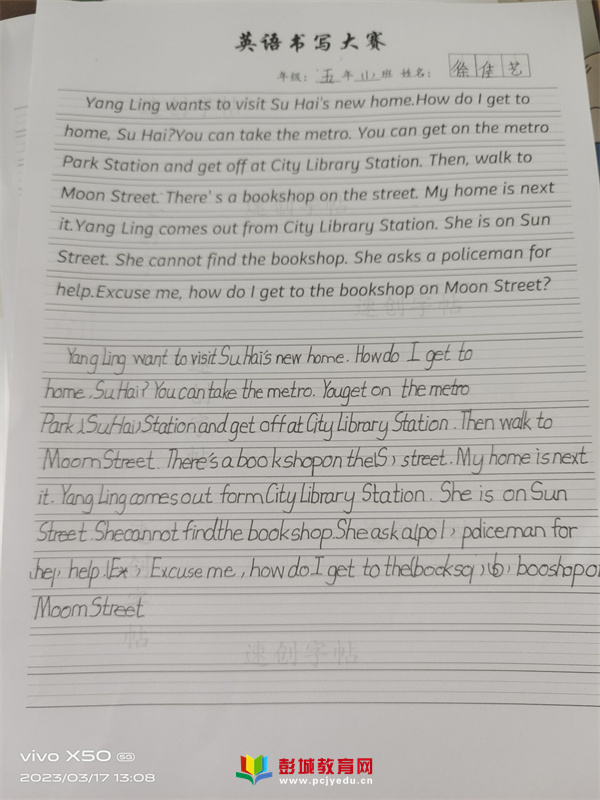 英语书写大赛
年级：五年 班 姓名：徐佳艺
Yang Ling wants to visit Su Hai's new home.How do I get to
home, Su Hai?You can take the metro. You can get on the metro
Park Station and get off at City Library Station. Then, walk to
Moon Street. There's a bookshop on the street. My home is next
it.Yang Ling comes out from City Library Station. She is on Sun
Street. She cannot find the bookshop. She asks a policeman for
help.Excuse me, how do I get to the bookshop on Moon Street?
速创字帖
Yang Ling want to visit Su Hai's new home. How do I get to
home, Su Hai? You can take the metro. You get on the metro
Park (Su Hai) Station and get off at City Library Station. Then walk to
Moom Street. There's a bookshop on the (S) street. My home is next
it. Yang Ling comes out form City Library Station. She is on Sun
Street. She cannot find the bookshop. She ask a (po) policeman for
help (Ex) Excuse me, how do I get to the (b) booshop on
Moom Street
速创字帖
vivo X50 5G
2023/03/17 13:08
彭城教育网
www.pcjyedu.cn